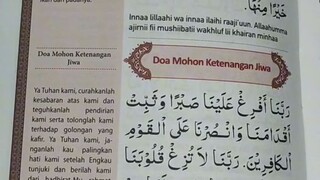 خَيْرًا مِنْهَا.
Innaa lillaahi wa innaa ilaihi raaji'uun. Allaahumma
ajirnii fii mushiibatii wakhluf lii khairan minhaa
Doa Mohon Ketenangan
Jiwa
Ya Tuhan kami, curahkanlah
kesabaran atas kami dan
teguhkanlah pendirian
kami serta tolonglah kami
terhadap golongan yang
kafir. Ya Tuhan kami, ja-
nganlah kau palingkan
hati kami setelah Engkau
tunjuki dan berilah kami
Doa Mohon Ketenangan Jiwa
رَبَّنَا أَفْرِغْ عَلَيْنَا صَبْرًا وَثَبِّتْ
أَقْدَامَنَا وَانْصُرْنَا عَلَى الْقَوْمِ
الْكَافِرِيْنَ. رَبَّنَا لَا تُزِغْ قُلُوْبَنَا